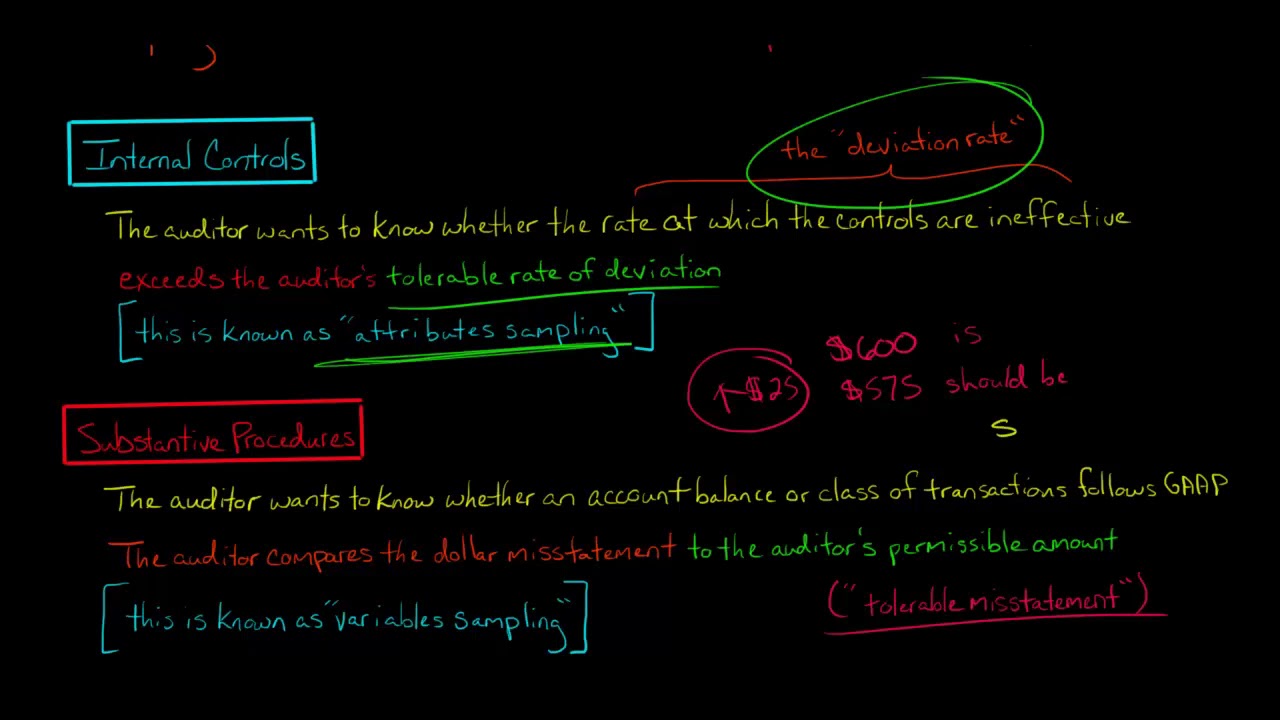 the "deviation rate"
Internal Controls
The auditor wants to know whether the rate at which the controls are ineffective
exceeds the auditor's tolerable rate of deviation
[this is known as "attributes sampling"]
$600 is
↑$25 $575 should be
S
Substantive Procedures
The auditor wants to know whether an account balance or class of transactions follows GAAP
The auditor compares the dollar misstatement to the auditor's permissible amount
("tolerable misstatement")
[this is known as "variables sampling"]